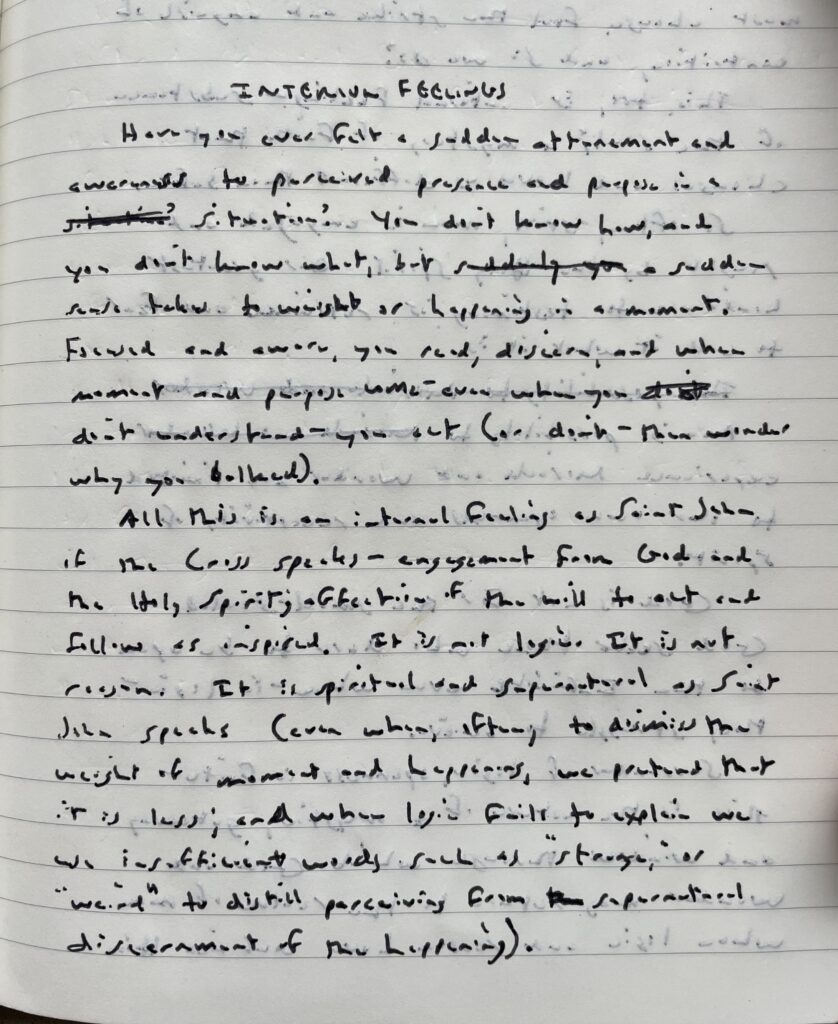 INTERIUR FEELINGS
Have you ever felt a sudden attunement and
awareness to perceived presence and purpose in a
situation? situation? You don't know how, and
you don't know what, but suddenly you a sudden
sense takes to weight or happening in a moment.
Focused and aware, you read, discern, and when
moment and purpose come – even when you don't
don't understand – you act (or don't – then wonder
why you balked).
All this is an internal feeling as Saint John
of the Cross speaks – engagement from God and
the Holy Spirit, affection of the will to act and
follow as inspired. It is not logic. It is not
reason. It is spiritual and supernatural as Saint
John speaks (even when, often, to dismiss the
weight of moment and happening, we pretend that
it is less; and when logic fails to explain we
use insufficient words such as "strange," or
"weird" to distill perceiving from supernatural
discernment of the happening).